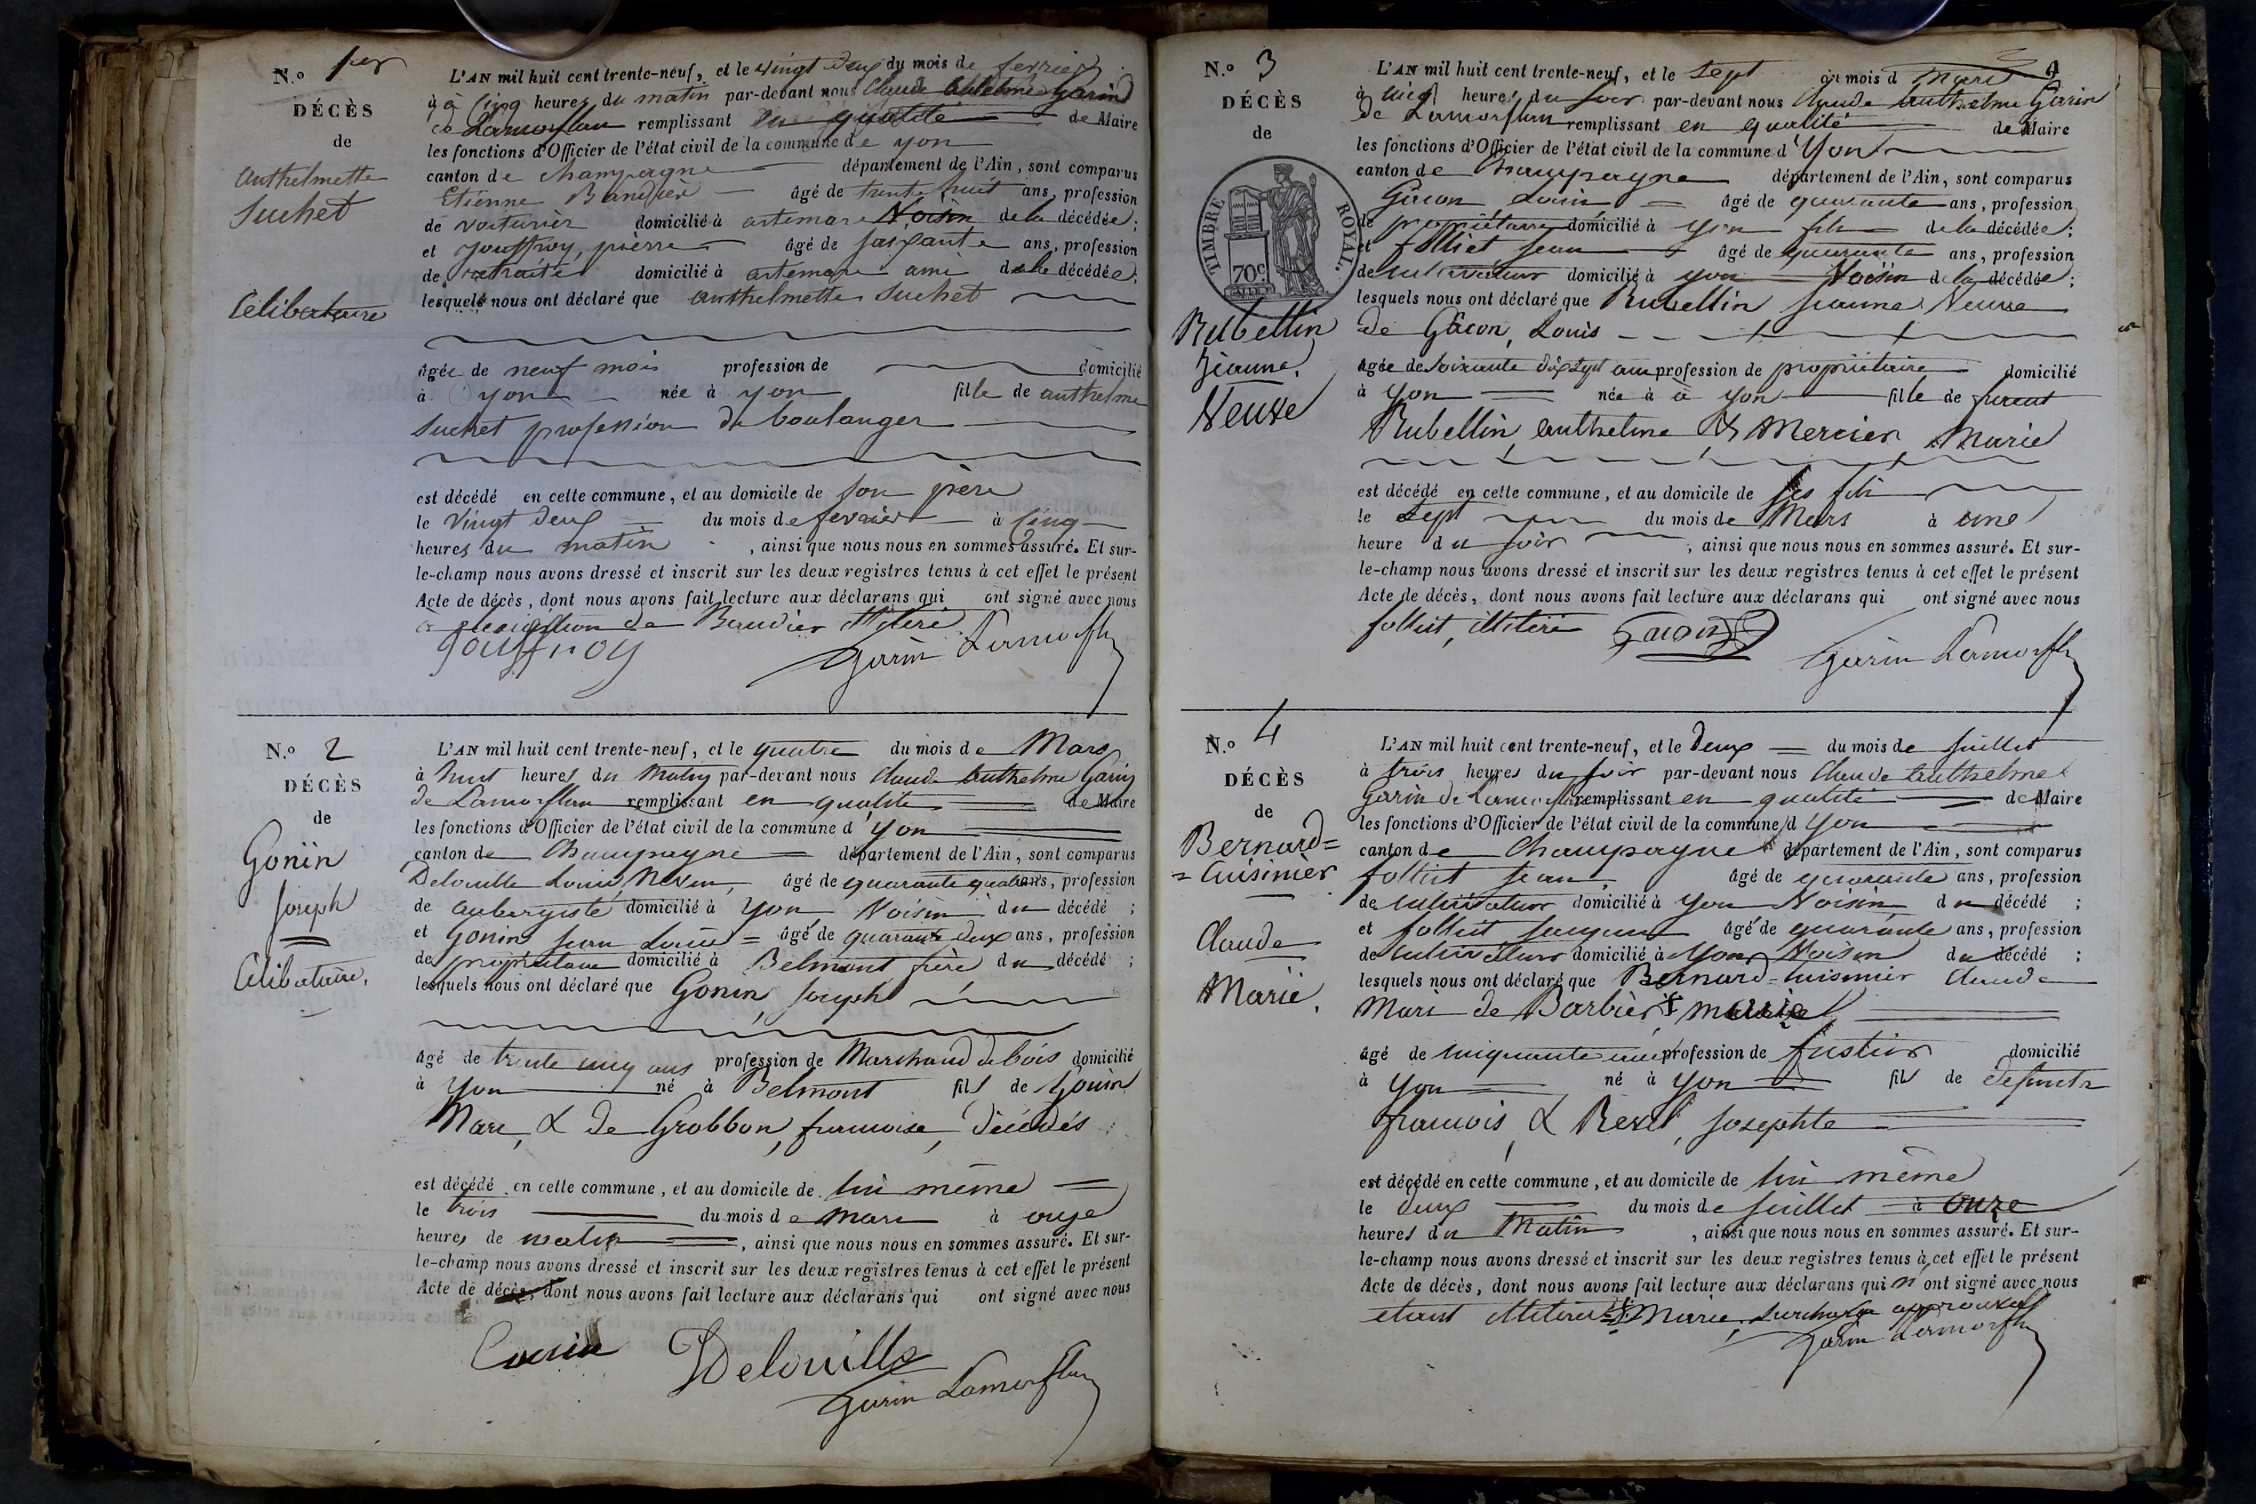 N.º 1er
DÉCÈS
de
Anthelmette
Suchet
Célibataire
L'AN mil huit cent trente-neuf, et le vingt deux du mois de fevrier
à à cinq heures du matin par-devant nous Claude Anthelme Garin
de Lamorflan remplissant en qualité de Maire
les fonctions d'Officier de l'état civil de la commune de yon
canton de champagne département de l'Ain, sont comparus
Etienne Baudier âgé de trente huit ans, profession
de voiturier domicilié à artemare Voisin de la décédée;
et Jouffroy, pierre âgé de soixante ans, profession
de retraité domicilié à artemare ami de la décédée;
lesquels nous ont déclaré que anthelmette Suchet
âgée de neuf mois profession de domicilié
à yon née à yon fille de anthelme
Suchet profession de boulanger
est décédé en cette commune, et au domicile de son père
le vingt deux du mois de fevrier à cinq
heures du matin, ainsi que nous nous en sommes assuré. Et sur-
le-champ nous avons dressé et inscrit sur les deux registres tenus à cet effet le présent
Acte de décès, dont nous avons fait lecture aux déclarans qui ont signé avec nous
de Baudier illitéré
Jouffroy Garin Lamorflan
N.º 2
DÉCÈS
de
Gonin
Joseph
Célibataire.
L'AN mil huit cent trente-neuf, et le quatre du mois de Mars
à huit heures du matin par-devant nous Claude Anthelme Garin
de Lamorflan remplissant en qualité de Maire
les fonctions d'Officier de l'état civil de la commune d'yon
canton de Champagne département de l'Ain, sont comparus
Delouille Louis âgé de quarante quatre ans, profession
de aubergiste domicilié à yon Voisin du décédé;
et Gonin Jean Louis = âgé de quarante deux ans, profession
de propriétaire domicilié à Belmont frère du décédé;
lesquels nous ont déclaré que Gonin, Joseph
âgé de trente cinq ans profession de Marchand de bois domicilié
à yon né à Belmont fils de Gonin
Marc, & de Grobbon, francoise, décédés.
est décédé en cette commune, et au domicile de lui même =
le trois du mois de mars à onze
heures de matin, ainsi que nous nous en sommes assuré. Et sur-
le-champ nous avons dressé et inscrit sur les deux registres tenus à cet effet le présent
Acte de décès, dont nous avons fait lecture aux déclarans qui ont signé avec nous
Gonin Delouille
Garin Lamorflan
N.º 3
DÉCÈS
de
TIMBRE ROYAL.
70c
Rubellin
Jeanne.
Veuve
4
L'AN mil huit cent trente-neuf, et le sept du mois d mars
à heures du soir par-devant nous Claude Anthelme Garin
de Lamorflan remplissant en qualité de Maire
les fonctions d'Officier de l'état civil de la commune d'Yon
canton de Champagne département de l'Ain, sont comparus
Gâcon Louis = âgé de quarante ans, profession
de propriétaire domicilié à yon fils de la décédée;
et folliet Jean âgé de quarante ans, profession
de cultivateur domicilié à yon Voisin de la décédée;
lesquels nous ont déclaré que Rubellin Jeanne Veuve
de Gâcon, Louis
âgée de soixante dix sept ans profession de propriétaire domicilié
à yon née à à yon fille de furent
Rubellin anthelme & Mercier Marie
est décédé en cette commune, et au domicile de ses fils
le sept du mois de Mars à une
heure du soir; ainsi que nous nous en sommes assuré. Et sur-
le-champ nous avons dressé et inscrit sur les deux registres tenus à cet effet le présent
Acte de décès, dont nous avons fait lecture aux déclarans qui ont signé avec nous
folliet, illitéré Gacon
Garin Lamorflan
N.º 4
DÉCÈS
de
Bernard=
=Cuisinier
Claude
Marié.
L'AN mil huit cent trente-neuf, et le deux = du mois de Juillet
à trois heures du soir par-devant nous Claude Anthelme
Garin de Lamorflan remplissant en qualité de Maire
les fonctions d'Officier de l'état civil de la commune d'yon
canton de Champagne département de l'Ain, sont comparus
folliet Jean, âgé de quarante ans, profession
de cultivateur domicilié à yon Voisin du décédé;
et folliet Jacques âgé de quarante ans, profession
de cultivateur domicilié à yon Voisin du décédé;
lesquels nous ont déclaré que Bernard=cuisinier Claude
Mari de Barbier, marie
âgé de cinquante profession de domicilié
à yon né à yon fils de defunts
francois, & Revel, Josephte
est décédé en cette commune, et au domicile de lui même
le deux du mois de Juillet à onze
heures du Matin, ainsi que nous nous en sommes assuré. Et sur-
le-champ nous avons dressé et inscrit sur les deux registres tenus à cet effet le présent
Acte de décès, dont nous avons fait lecture aux déclarans qui n'ont signé avec nous
étant illiterés Marie, surcharge approuvée
Garin Lamorflan